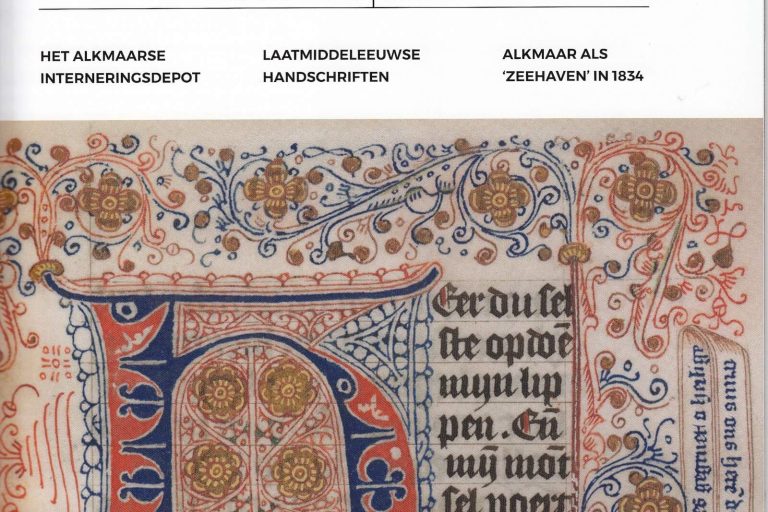 HET ALKMAARSE
INTERNERINGSDEPOT
LAATMIDDELEEUWSE
HANDSCHRIFTEN
ALKMAAR ALS
‘ZEEHAVEN’ IN 1834
Eer du sel
ste opdoē
mijn lip
pen. Eñ
mij mōt